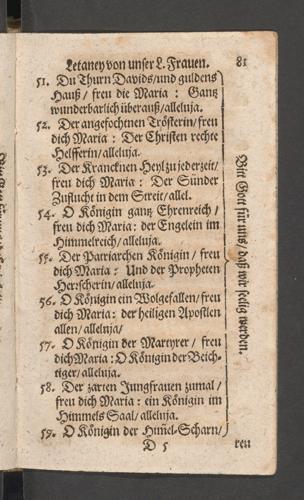 Letaney von unser L. Frauen. 81
51. Du Thurn Davids/und guldens
Hauß / freu die Maria : Gantz
wunderbarlich überauß/alleluja.
52. Der angefochtenen Trösterin/ freu
dich Maria : Der Christen rechte
Helfferin/alleluja.
53. Der Krancknen Heyl zu jederzeit/
freu dich Maria : Der Sünder
Zuflucht in dem Streit/allel.
54. O Königin gantz Ehrenreich /
freu dich Maria: der Engelein im
Himmelreich/alleluja.
55. Der Patriarchen Königin / freu
dich Maria : Und der Propheten
Herrscherin/alleluja.
56. O Königin ein Wolgefallen/freu
dich Maria: der heiligen Apostlen
allen/ alleluja/
57. O Königin der Martyrer / freu
dich Maria : O Königin der Beich-
tiger/alleluja.
58. Der zarten Jungfrauen zumal /
freu dich Maria : ein Königin im
Himmels Saal/alleluja.
59. O Königin der Him̃el-Scharn/
D 5 reu
Bitt Gott für uns/ daß wir seelig werden.